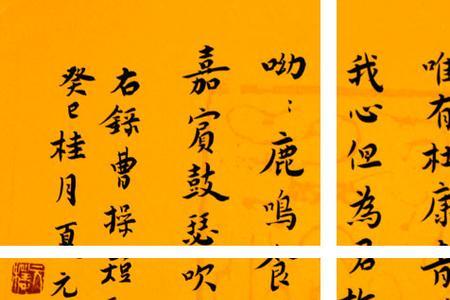 唯有杜康青
我心但為君故
呦：鹿鳴食
嘉賓鼓瑟吹
右錄曹操短
癸巳桂月夏元